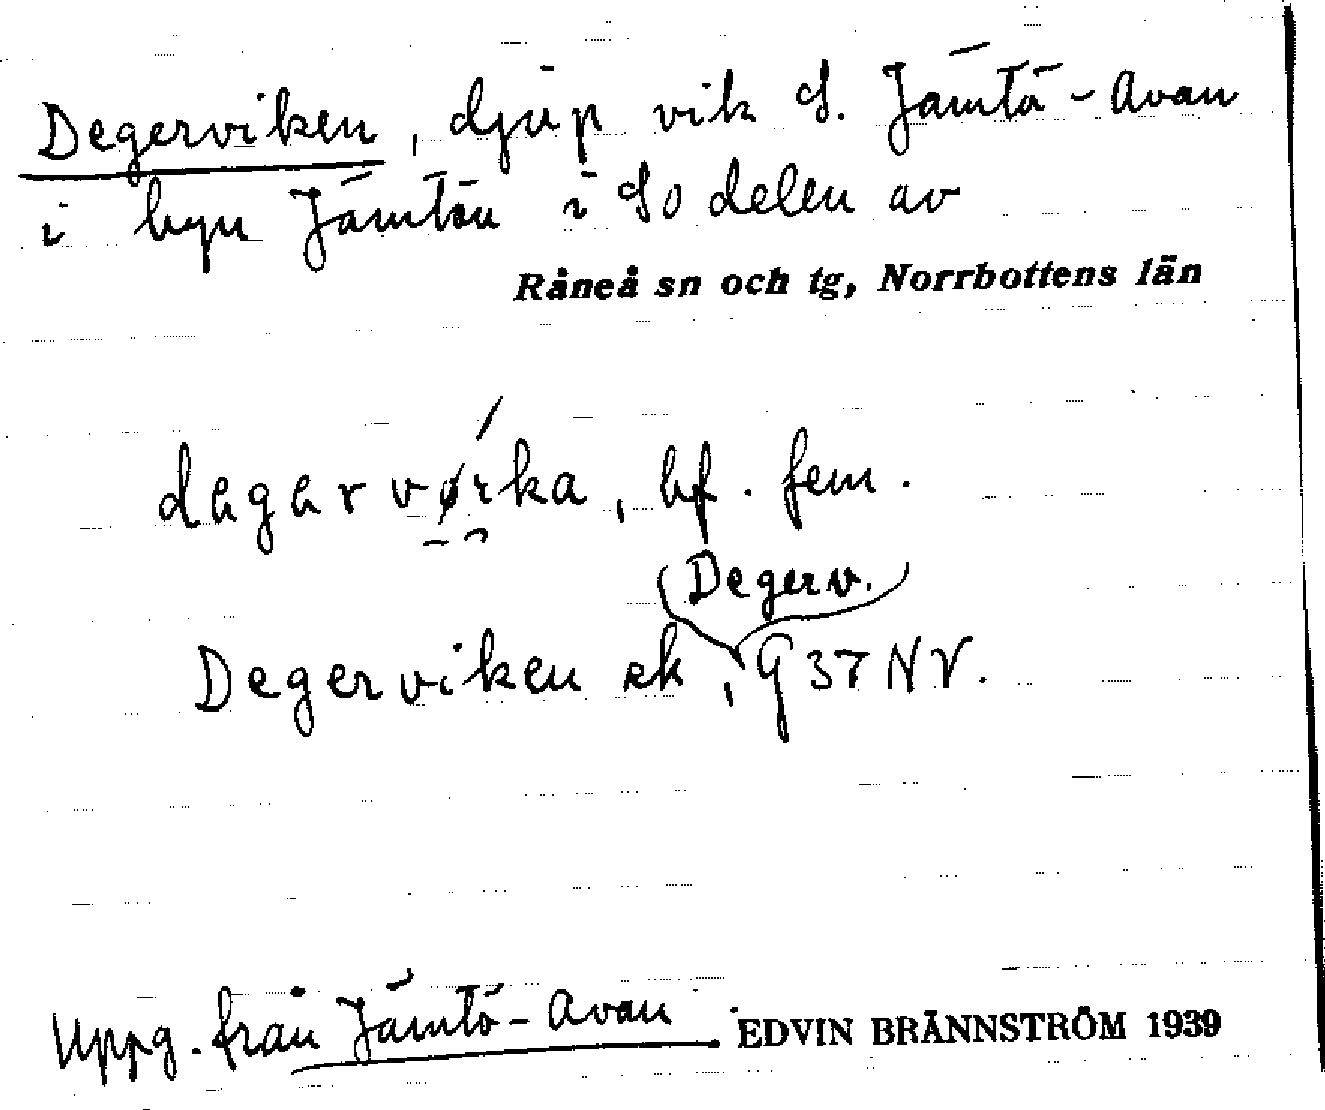 Degerviken, djup vik S. Jämtö-Avan
i byn Jämtön i So delen av
Råneå sn och tg, Norrbottens län
bf. fem.
(Degerv.)
Degerviken ek, G37NV.
Uppg. från Jämtö-Avan EDVIN BRÄNNSTRÖM 1939